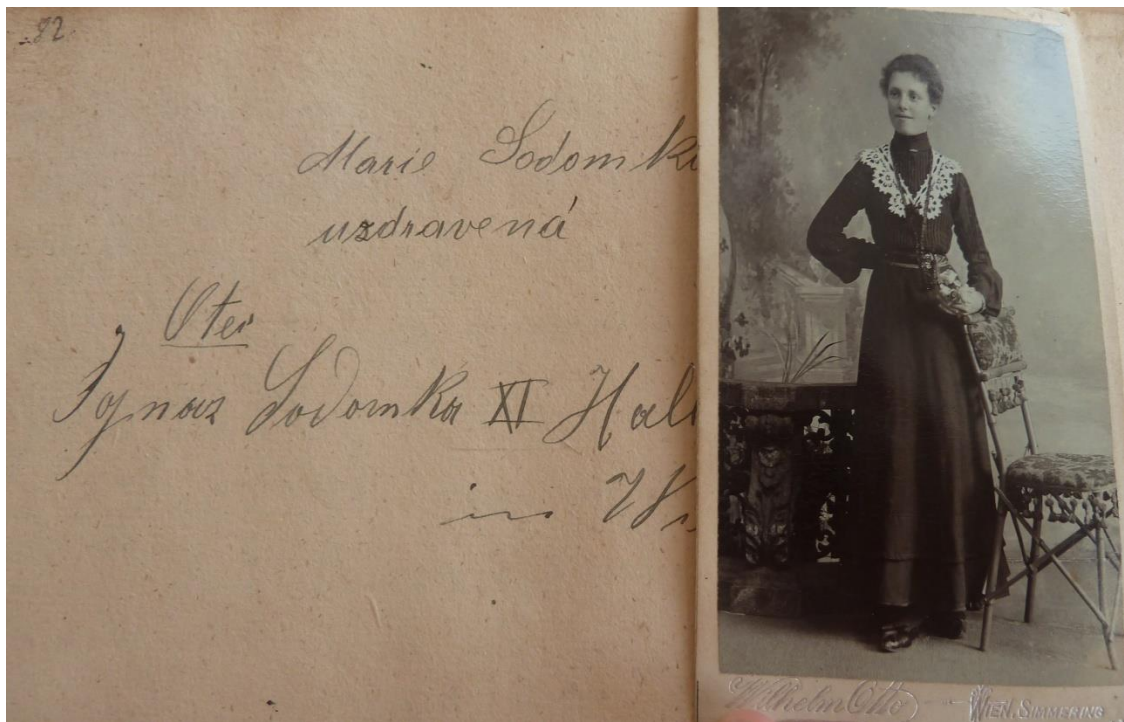 92.
Marie Sodomk
uzdravená
Otec
Ignaz Sodomka XI Hal
in Wi
Wilhelm Otto
WIEN. SIMMERING